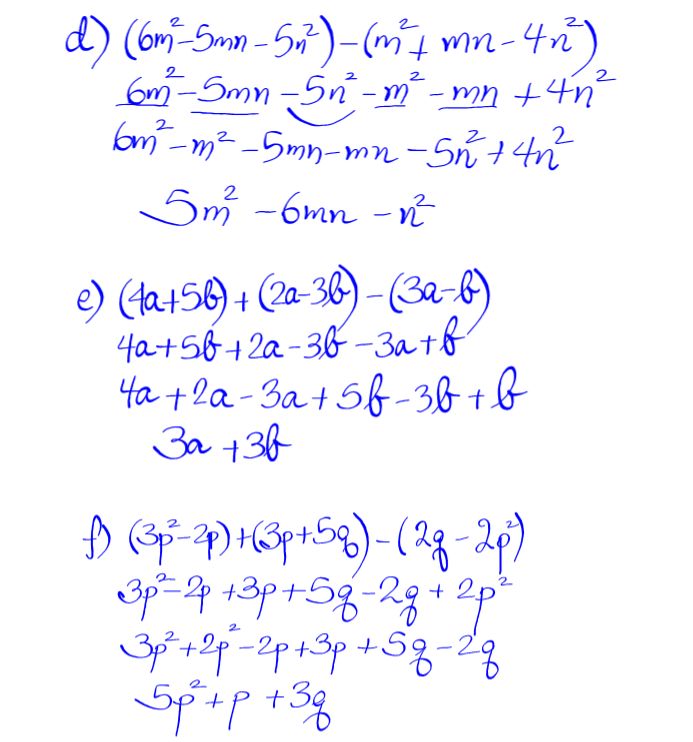 d) (6m²-5mn-5n²)-(m²+ mn-4n²)
6m²-5mn-5n²-m²-mn+4n²
6m²-m²-5mn-mn-5n²+4n²
5m²-6mn-n²
e) (4a+5b)+(2a-3b)-(3a-b)
4a+5b+2a-3b-3a+b
4a+2a-3a+5b-3b+b
3a+3b
f) (3p²-2p)+(3p+5q)-(2q-2p²)
3p²-2p+3p+5q-2q+2p²
3p²+2p²-2p+3p+5q-2q
5p²+p+3q